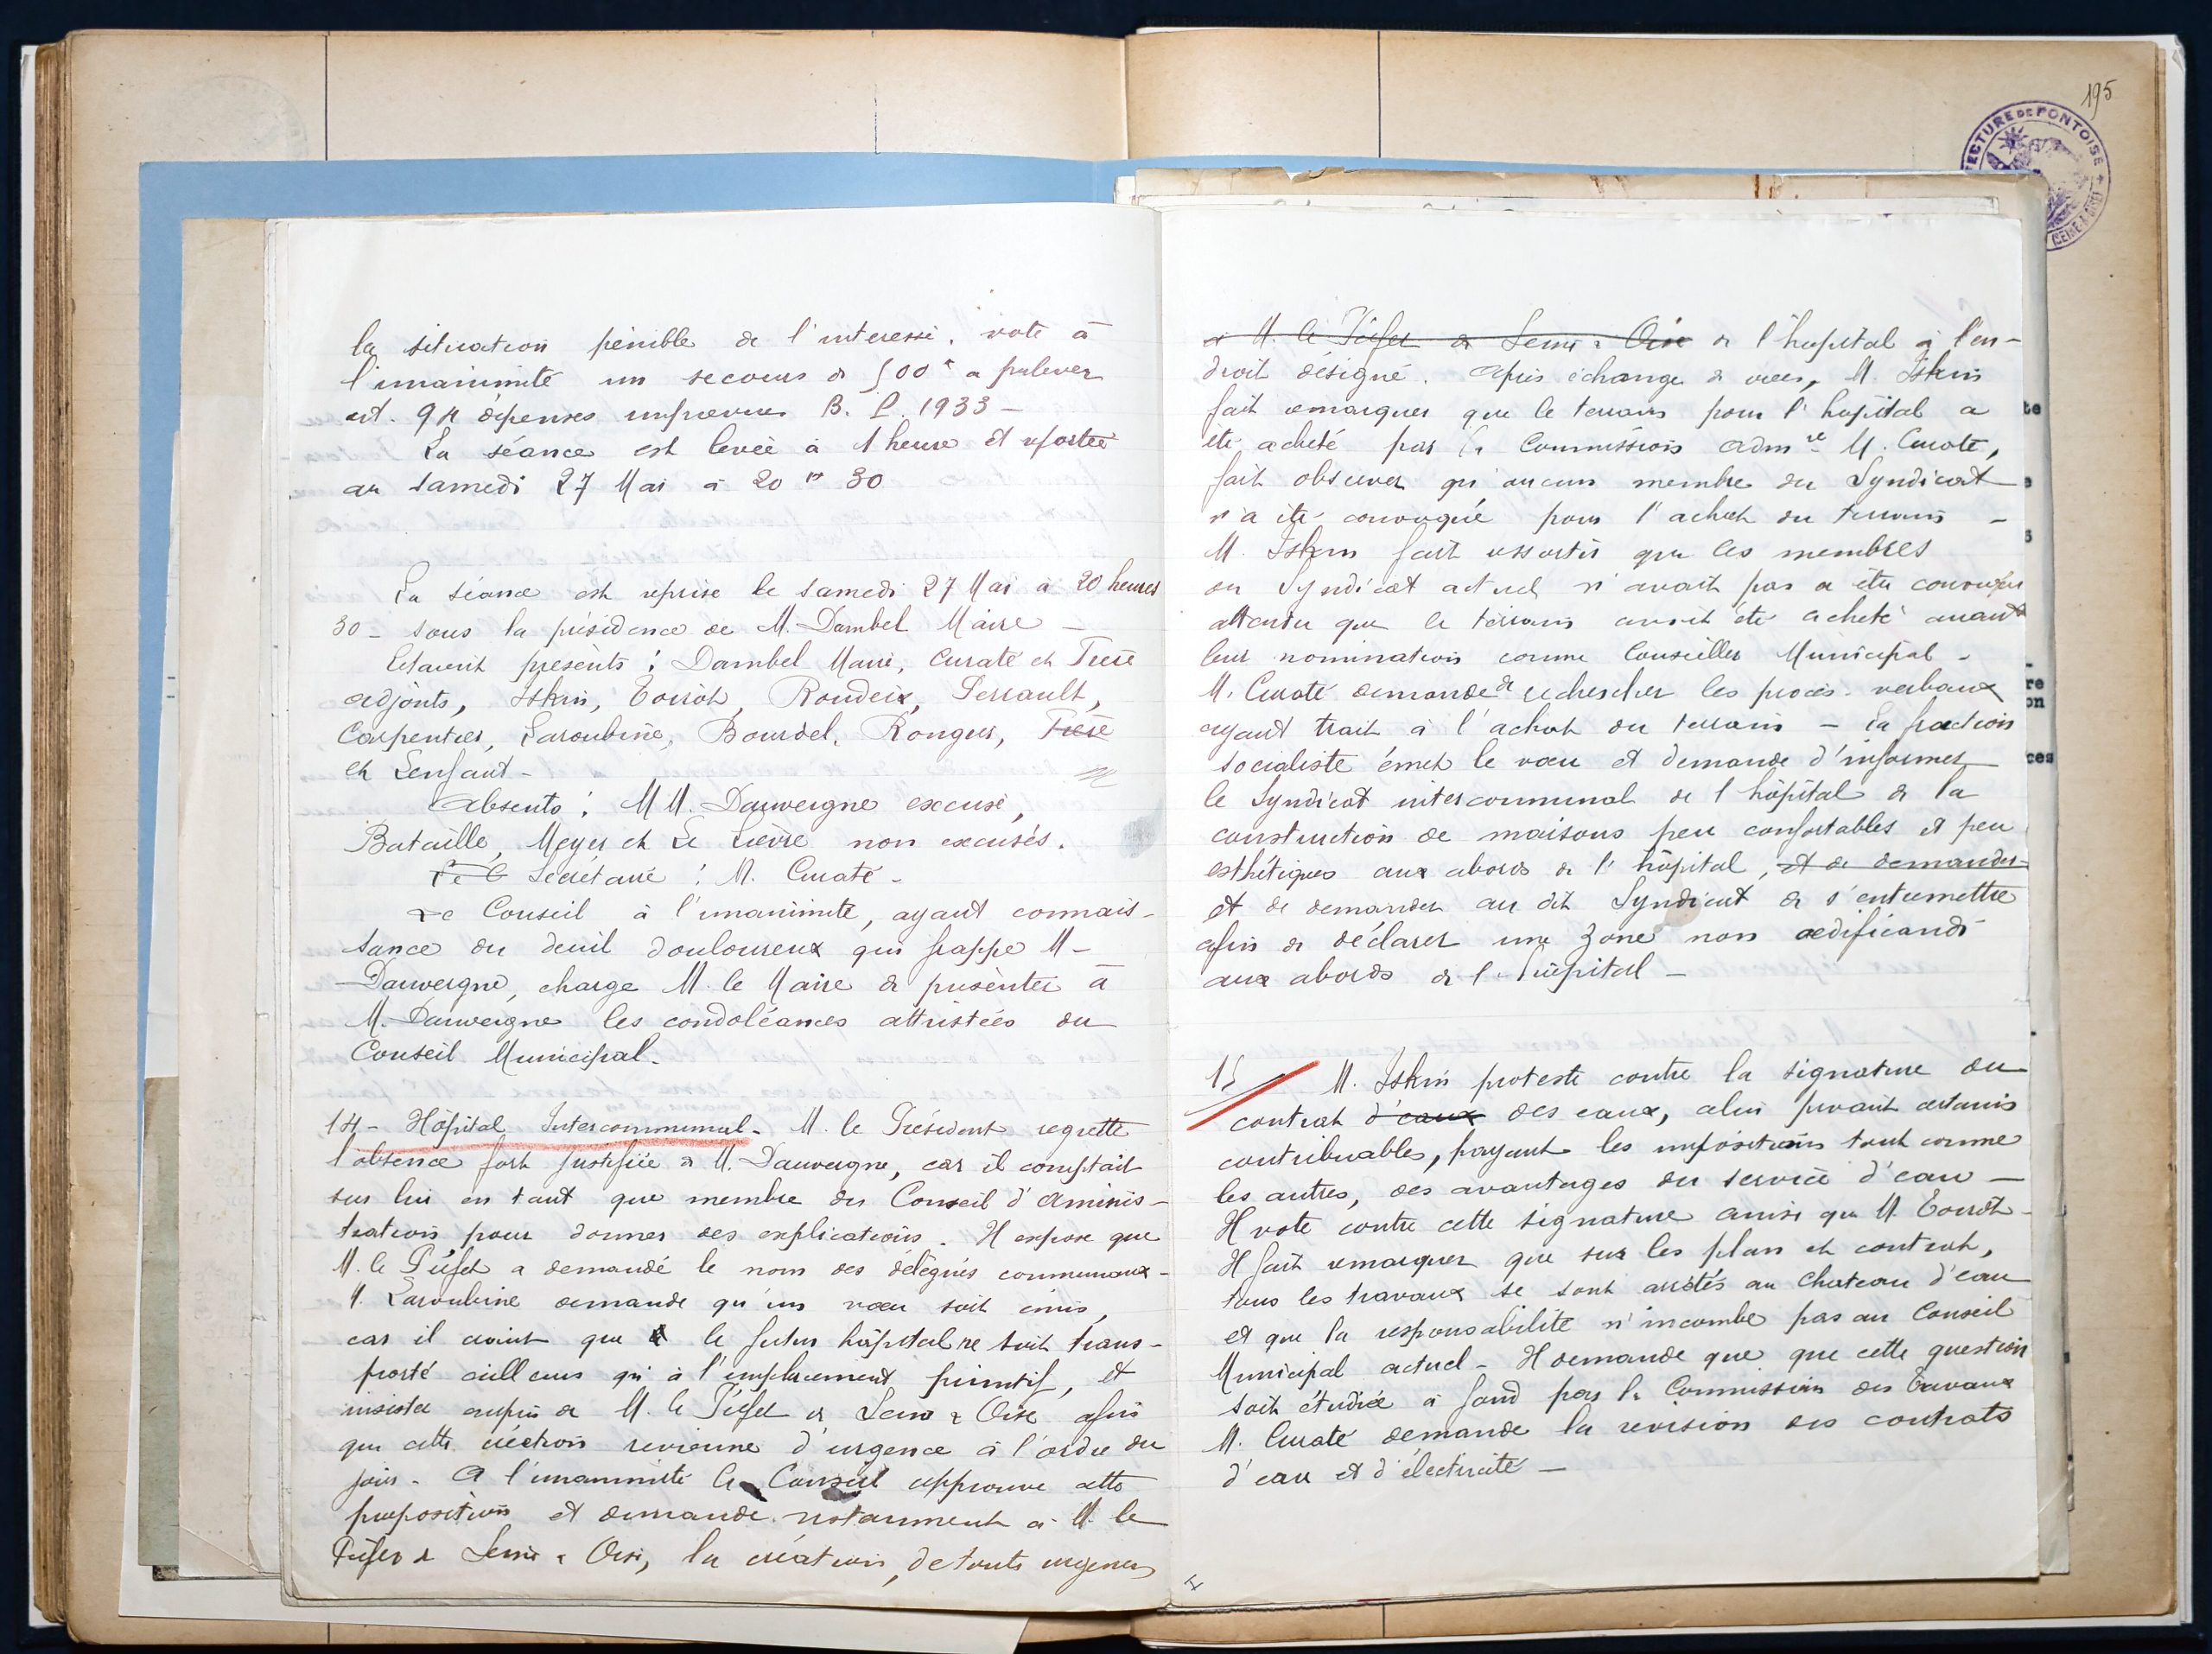 la situation pénible de l'interessé, vote à
l'unanimité un secours de 500 f à prelever
art. 94 dépenses imprevues B. P. 1933 -
La séance est levée à 1 heure et reportée
au samedi 27 Mai à 20 hr 30
La séance est reprise le samedi 27 Mai à 20 heures
30 - sous la présidence de M. Dambel Maire -
Etaient présents : Dambel Maire, Curaté et Frere
adjoints, Iskin, Toirot, Roudeix, Perrault,
Carpentier, Laroubine, Bourdel, Ronger, Frere
et Lenfant -
Absents : MM. Dauvergne excusé,
Bataille, Meyer et Le Lièvre non excusés.
Secrétaire : M. Curaté -
Le Conseil à l'unanimité, ayant connais-
sance du deuil douloureux qui frappe M-
Dauvergne, charge M. le Maire de présenter à
M. Dauvergne les condoléances attristées du
Conseil Municipal.
14 - Hôpital Intercommunal - M. le Président regrette
l'absence fort justifiée de M. Dauvergne, car il comptait
sur lui en tant que membre du Conseil d'Aminis-
tration pour donner des explications. Il expose que
M. le Préfet a demandé le nom des délégués communaux -
M. Laroubine demande qu'un vœu soit émis,
car il craint que le futur hôpital ne soit trans-
porté ailleurs qu'à l'emplacement primitif, et
insiste auprès de M. le Préfet de Seine & Oise afin
que cette création revienne d'urgence à l'ordre du
jour - A l'unanimité le Conseil approuve cette
proposition et demande notamment à M. le
Préfet de Seine & Oise, la création, de toute urgence
195
ECTURE DE PONTOISE
et M. le Préfet de Seine & Oise de l'hopital à l'en-
droit désigné. Après échange de vues, M. Iskin
fait remarquer que le terrain pour l'hopital a
été acheté par la Commission Admve M. Curaté,
fait observer qu'aucun membre du Syndicat
n'a été convoqué pour l'achat du terrain -
M. Iskin fait ressortir que les membres
du Syndicat actuel n'avait pas a être convoqués
attendu que le terrain avait été acheté avant
leur nomination comme Conseiller Municipal -
M. Curaté demande de rechercher les procès-verbaux
ayant trait à l'achat du terrain - La fraction
socialiste émet le vœu et demande d'informer
le Syndicat intercommunal de l'hôpital de la
construction de maisons peu confortables et peu
esthétiques aux abords de l'hôpital, et de demander
et de demander au dit Syndicat de s'entremettre
afin de déclarer une zone non ædificandi
aux abords de l'hôpital -
15 M. Iskin proteste contre la signature du
contrat d'eaux des eaux, celui privant certains
contribuables, payant les impositions tout comme
les autres, des avantages du service d'eau -
Il vote contre cette signature ainsi que M. Toirot -
Il fait remarquer que sur les plan et contrat,
tous les travaux se sont arrêtés au Chateau d'eau
et que la responsabilité n'incombe pas au Conseil
Municipal actuel - Il demande que que cette question
soit étudiée à fond par la Commission des travaux
M. Curaté demande la revision des contrats
d'eau et d'électricité -